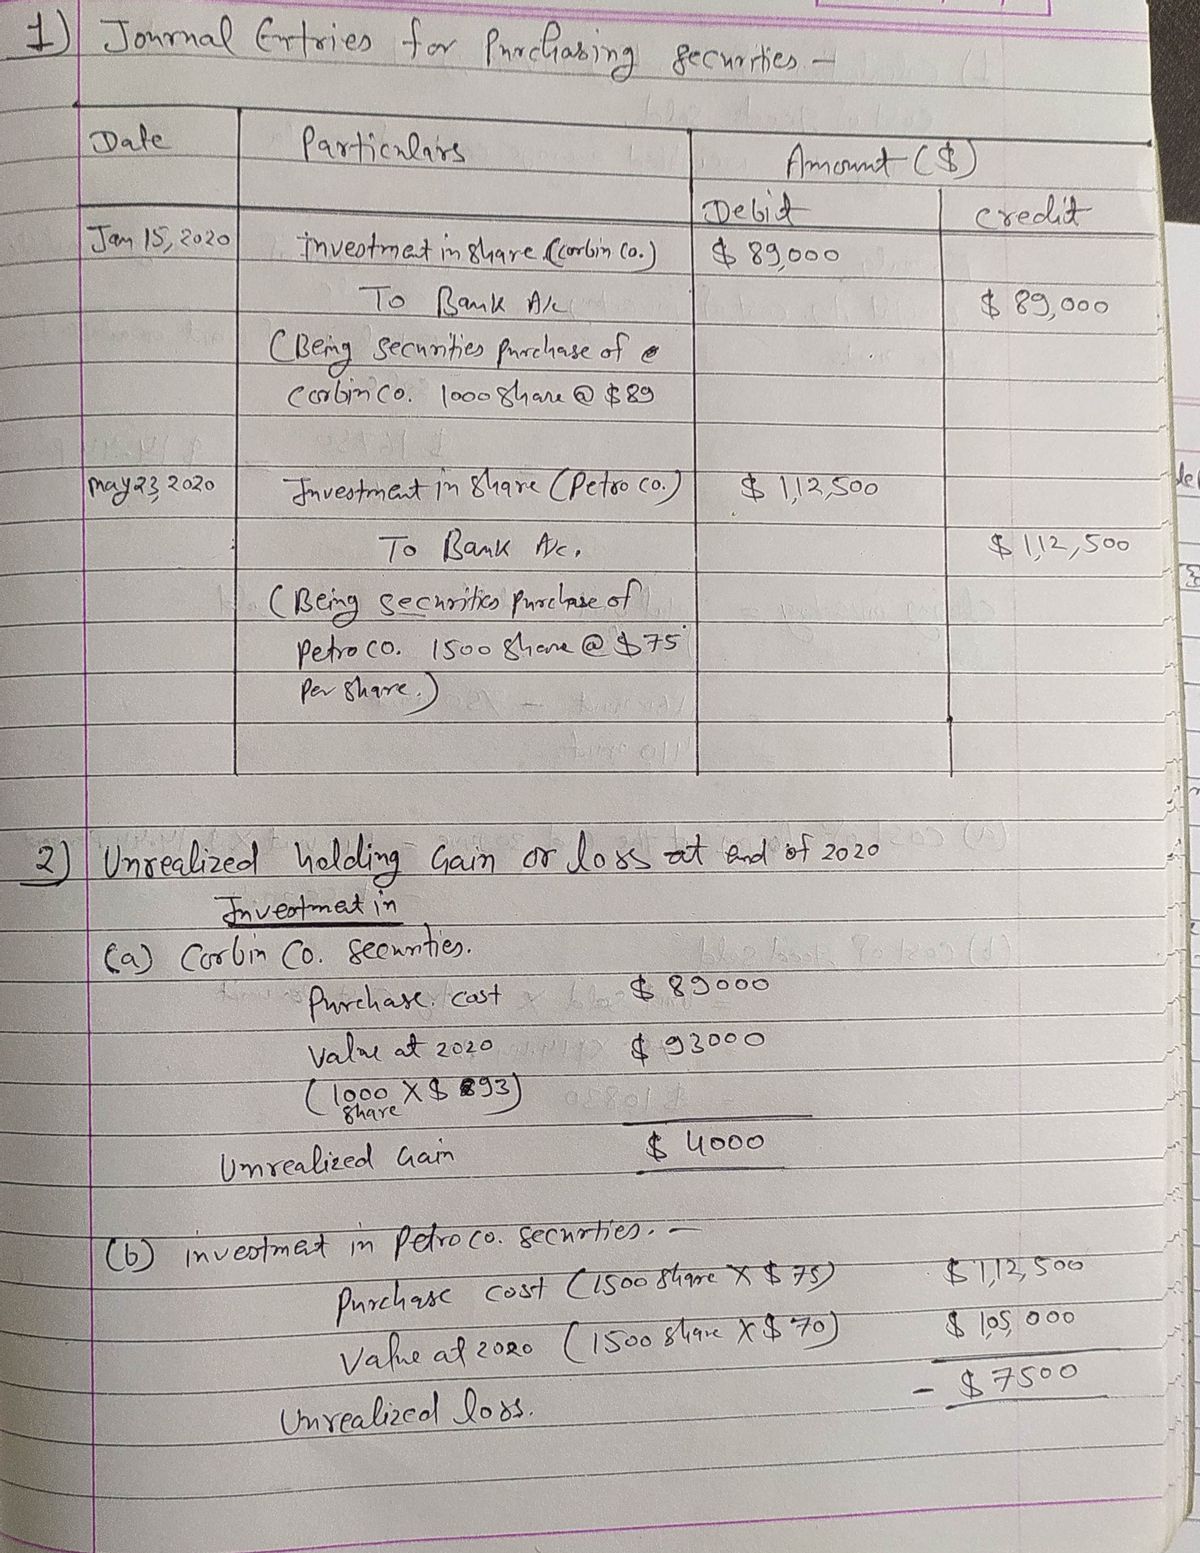 1) Journal Entries for Purchasing securities –
Date Particulars Amount ($)
Debit Credit
Jan 15, 2020 Investment in share (Corbin Co.) $ 89,000
To Bank A/c $ 89,000
(Being securities purchase of
Corbin Co. 1000 share @ $89
May 23, 2020 Investment in share (Petro Co.) $ 1,12,500
To Bank A/c. $ 1,12,500
(Being securities purchase of
Petro Co. 1500 share @ $75
Per share.)
2) Unrealized holding Gain or loss at end of 2020
Investment in
(a) Corbin Co. securities.
Purchase cost $ 89000
Value at 2020 $ 93000
(1000 share X $ 93)
Unrealized Gain $ 4000
(b) investment in Petro Co. securities. –
Purchase cost (1500 share X $ 75) $ 1,12,500
Value at 2020 (1500 share X $ 70) $ 1,05,000
Unrealized loss. - $ 7500